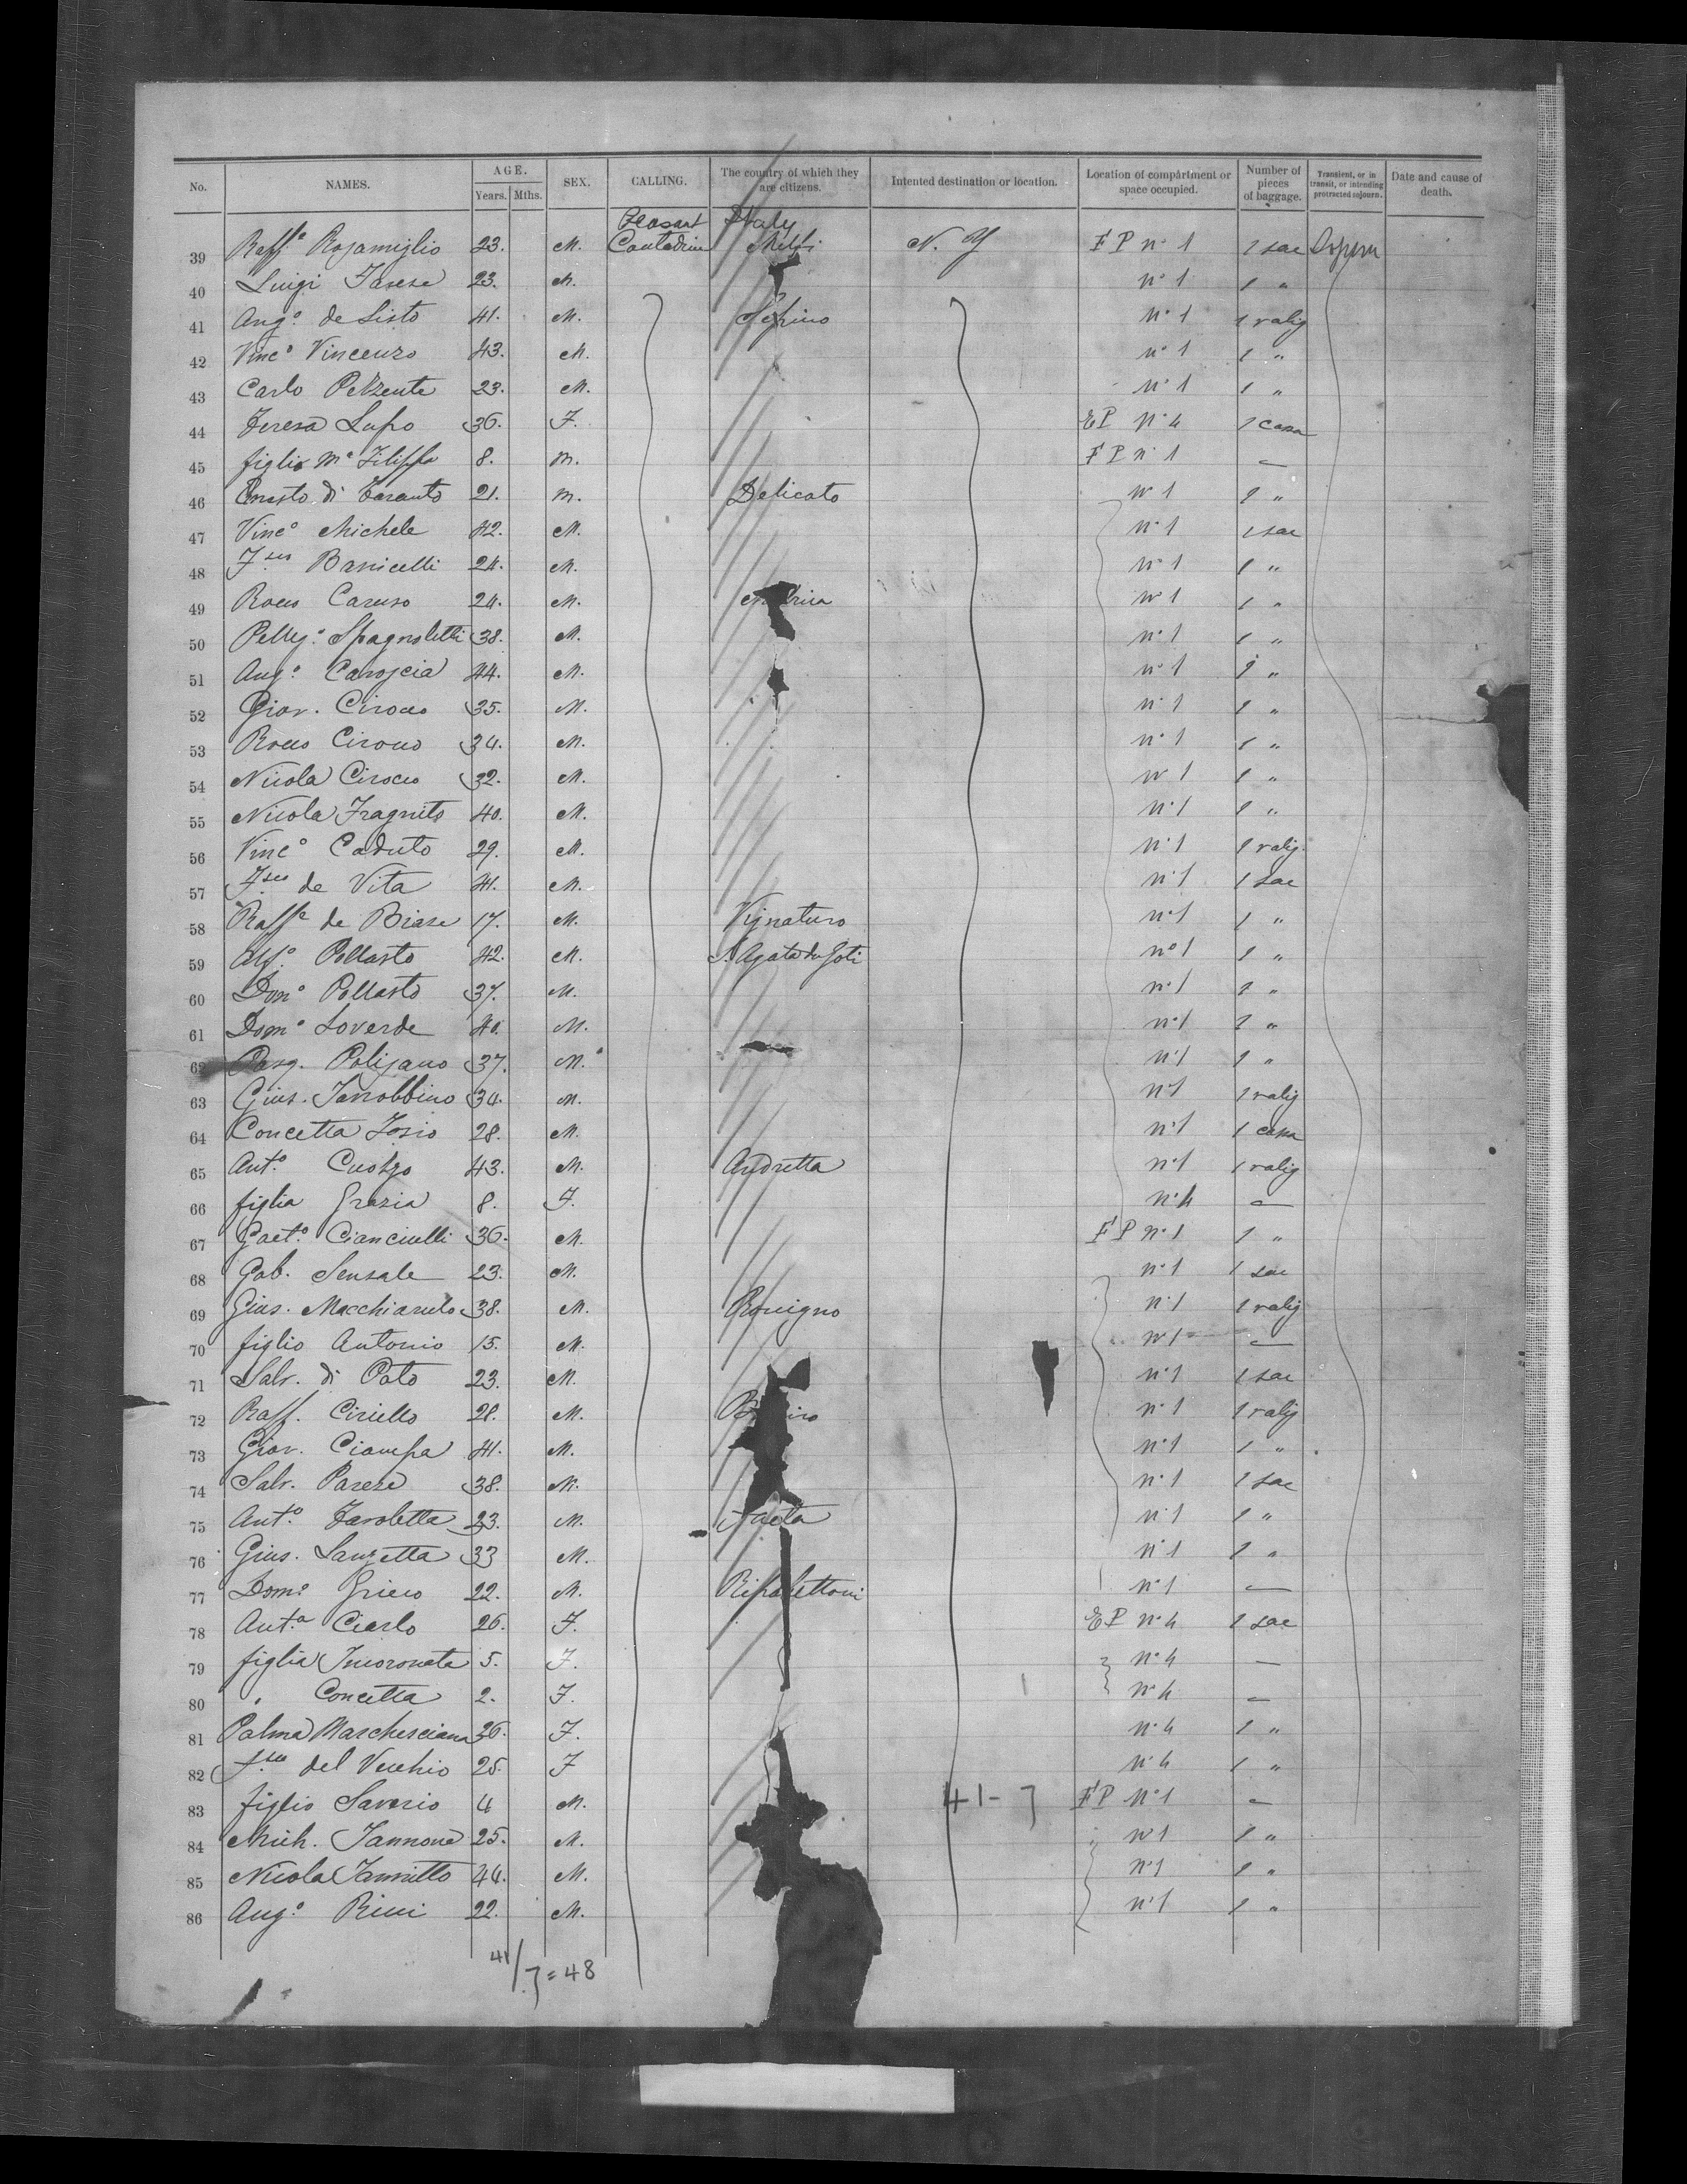 No. NAMES. AGE. Years. Mths. SEX. CALLING. The country of which they are citizens. Intented destination or location. Location of compártment or space occupied. Number of pieces of baggage. Transient, or in transit, or intending protracted sojourn. Date and cause of death.
Peasant Italy
39 Raff.e 23. M. Contadin Melfi N. Y F P n° 1 1 sac
40 Luigi 23. M. n° 1 1 "
41 Ang.o de Sisto 41. M. Sepino n° 1 1 valig
42 Vinc.o Vincenzo 43. M. n° 1 1 "
43 Carlo Pezzente 23. M. n° 1 1 "
44 Teresa Lupo 36. F. EP n° 4 1 cassa
45 figlio M.e Filippo 8. M. F P n° 1 —
46 di Taranto 21. M. Delicato n° 1 1 "
47 Vinc.o Michele 42. M. n° 1 1 sac
48 F.sco 24. M. n° 1 1 "
49 Rocco Caruso 24. M. n° 1 1 "
50 Pelleg.o Spagnoletti 38. M. n° 1 1 "
51 Ang.o Caroscia 44. M. n° 1 1 "
52 Giov. Cirocco 35. M. n° 1 1 "
53 Rocco Cirocco 34. M. n° 1 1 "
54 Nicola Cirocco 32. M. n° 1 1 "
55 Nicola Fragnito 40. M. n° 1 1 "
56 Vinc.o Caduto 29. M. n° 1 1 valig.
57 F.sco de Vita 41. M. n° 1 1 sac
58 Raff.e de Biase 17. M. Vignaturo n° 1 1 "
59 Alf.o Pollasto 42. M. S. Agata du Goti n° 1 1 "
60 Dom.o Pollasto 37. M. n° 1 1 "
61 Dom.o Loverde 40. M. n° 1 1 "
62 Pasq. Polisano 37. M. n° 1 1 "
63 Gius. Iarrobbino 34. M. n° 1 1 valig
64 Concetta Iosio 28. M. n° 1 1 cassa
65 Ant.o Cuozzo 43. M. Andretta n° 1 1 valig
66 figlia Grazia 8. F. n° 4 —
67 Gaet.o Cianciulli 36. M. F P n° 1 1 "
68 Gab. Sensale 23. M. n° 1 1 sac
69 Gius. Macchiarulo 38. M. n° 1 1 valig
70 figlio Antonio 15. M. n° 1 —
71 Salv. di Pato 23. M. n° 1 1 sac
72 Raff. Ciriello 28. M. n° 1 1 valig
73 Giov. Ciampa 41. M. n° 1 1 "
74 Salv. Parese 38. M. n° 1 1 sac
75 Ant.o Taroletta 23. M. n° 1 1 "
76 Gius. Lanzetta 33 M. n° 1 1 "
77 Dom.o Grieco 22. M. n° 1 —
78 Ant.a Ciarlo 26. F. EP n° 4 1 sac
79 figlia Incoronata 5. F. n° 4 —
80 " Concetta 2. F. n° 4 —
81 Palma Marchesciana 36. F. n° 4 1 "
82 F.sca del Vecchio 25. F n° 4 1 "
83 figlio Saverio 4 M. 41-7 F P n° 1 —
84 Mich. Iannone 25. M. n° 1 1 "
85 Nicola Iannitto 44. M. n° 1 1 "
86 Ang.o Rini 22. M. n° 1 1 "
41/7=48